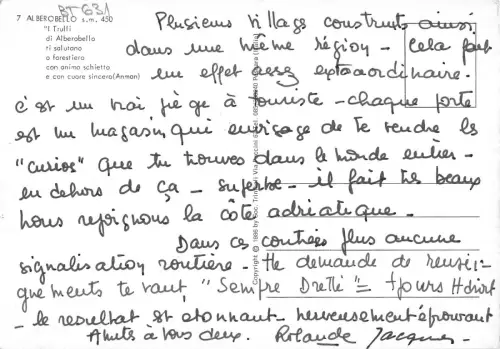 BT 631
7 ALBEROBELLO s.m. 450
"I Trulli
di Alberobello
ti salutano
o forestiero
con animo schietto
e con cuore sincero (Anman)
Plusieurs village construits ainsi
dans une même région - cela fait
un effet assez extraordinaire.
c'est un vrai piège à touriste - chaque porte
est un magasin qui envisage de te vendre les
"curios" que tu trouves dans le monde entier -
en dehors de ça - superbe - il fait très beaux
nous rejoignons la côte adriatique -
Dans ces contrées plus aucune
signalisation routière - Ile demande de renseig-
gnements te vaut, "Sempre Dretti" =
- le resultat est etonnant - nerveusement éprouvant
à tous deux. Rolande Jacques
Copyright © 1986 by